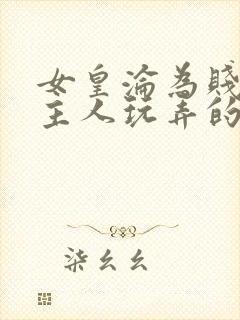 女皇淪為賤
主人玩弄的
柒幺幺